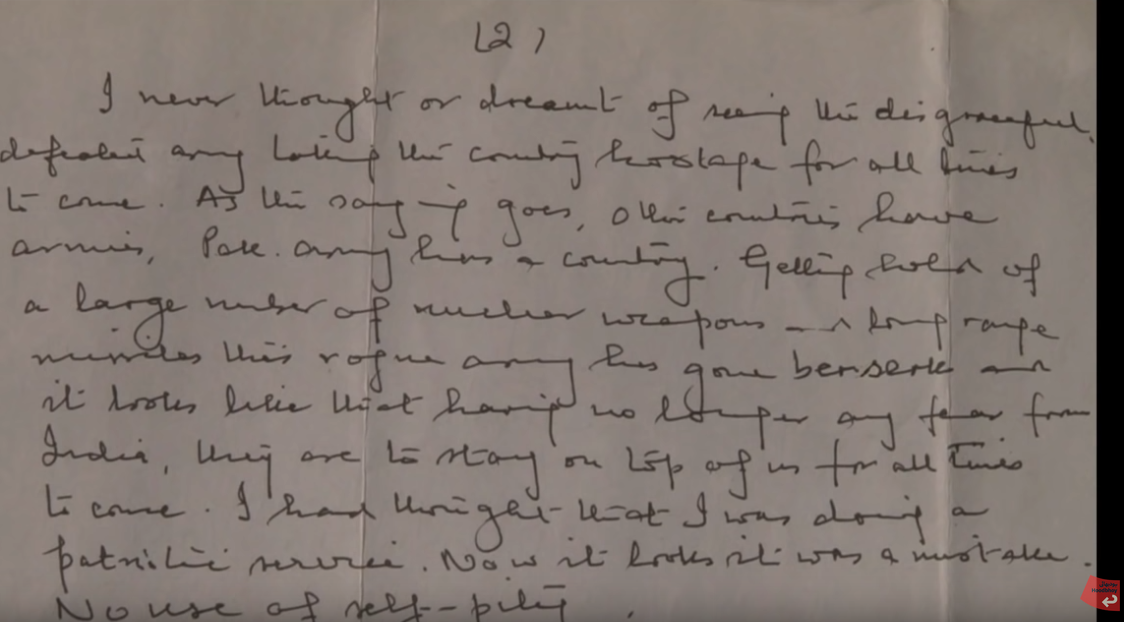 (2)
I never thought or dreamt of seeing this disgraceful,
defeated army taking the country hostage for all times
to come. As the saying goes, other countries have
armies, Pak. army has a country. Getting hold of
a large number of nuclear weapons and long range
missiles this rogue army has gone berserk and
it looks like that having no longer any fear from
India, they are to stay on top of us for all times
to come. I had thought that I was doing a
patriotic service. Now it looks it was a mistake.
No use of self-pity.